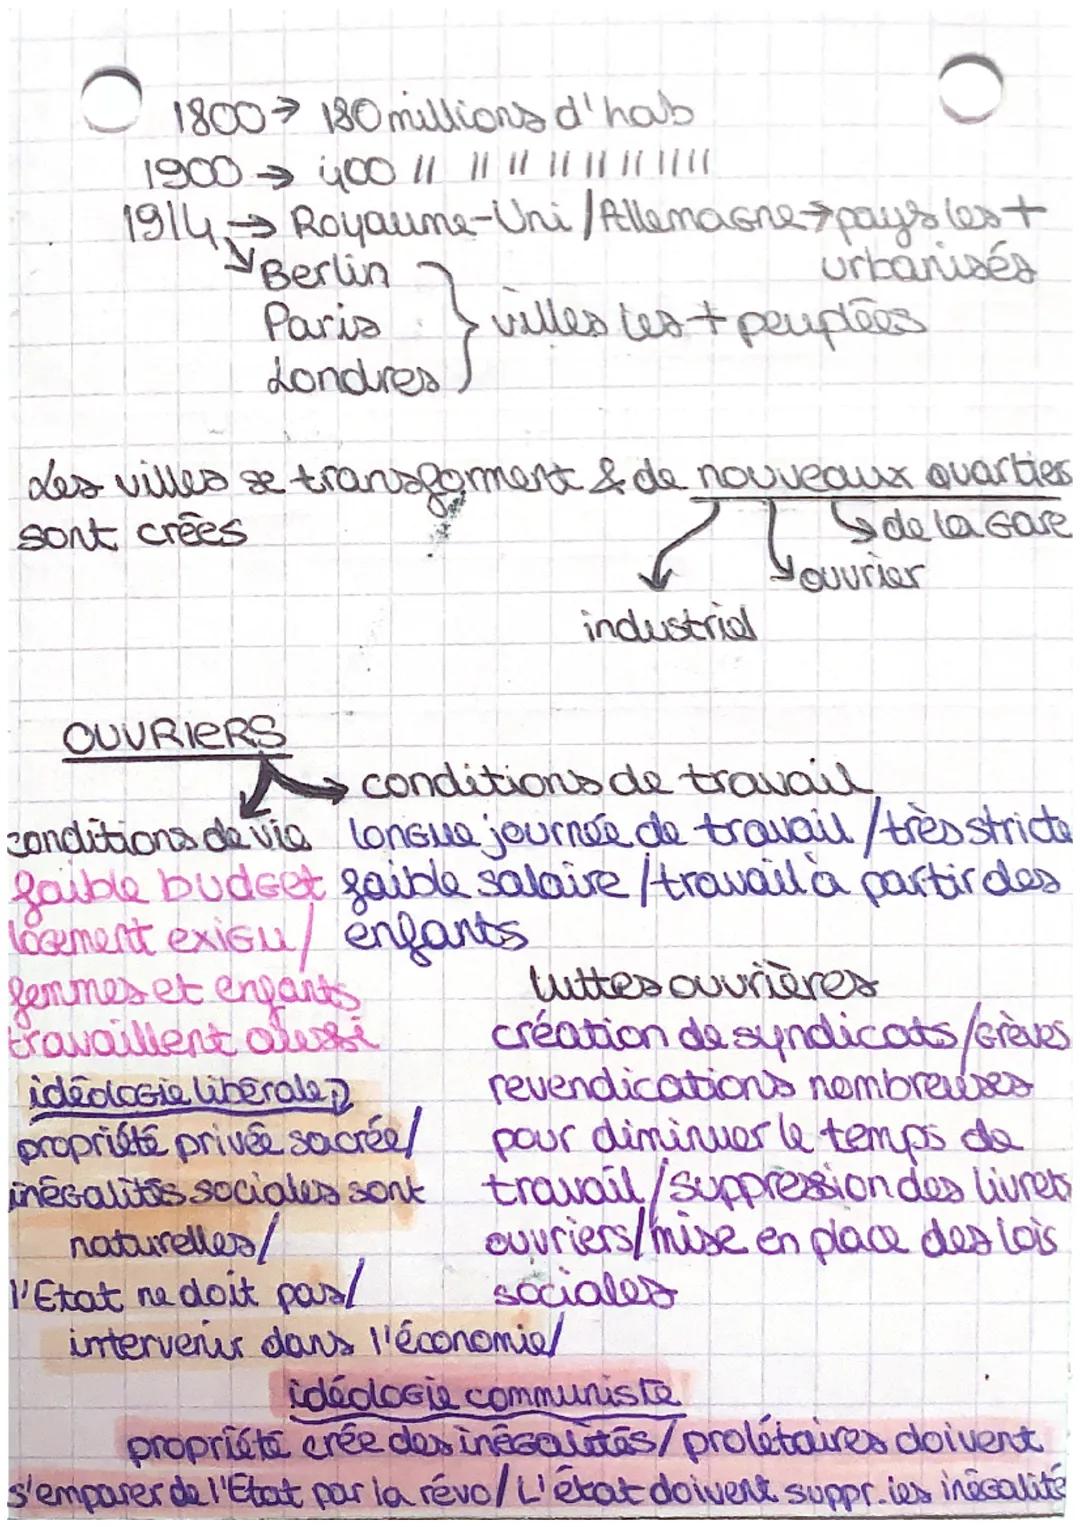 1800 → 180 millions d'hab
1900 → 400 // // // // // // // //
1914 → Royaume-Uni / Allemagne → pays les +
urbanisés
Berlin
Paris } villes les + peuplées
Londres
Les villes se transforment & de nouveaux quartiers
sont crées
↳ de la Gare
↳ ouvrier
industriel
OUVRIERS
→ conditions de travail
conditions de vie
longue journée de travail / très stricte
faible salaire / travail à partir des
enfants
faible budget
logement exigu /
femmes et enfants
travaillent aussi
luttes ouvrières
création de syndicats / Grèves
revendications nombreuses
pour diminuer le temps de
travail / suppression des livrets
ouvriers / mise en place des lois
sociales
idéologie libérale
propriété privée sacrée /
inégalités sociales sont
naturelles /
l'Etat ne doit pas /
intervenir dans l'économie /
idéologie communiste
propriété crée des inégalités / prolétaires doivent
s'emparer de l'Etat par la révo / L'état doivent suppr. les inégalité